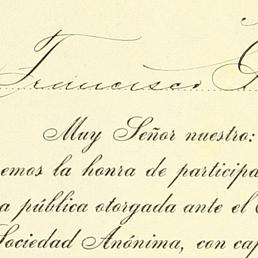 Francisco
Muy Señor nuestro:
emos la honra de participa
a pública otorgada ante el
Sociedad Anónima, con cap